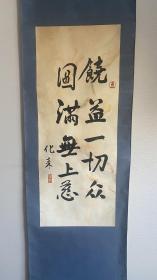 饒益一切众
圆满無上慈
化来